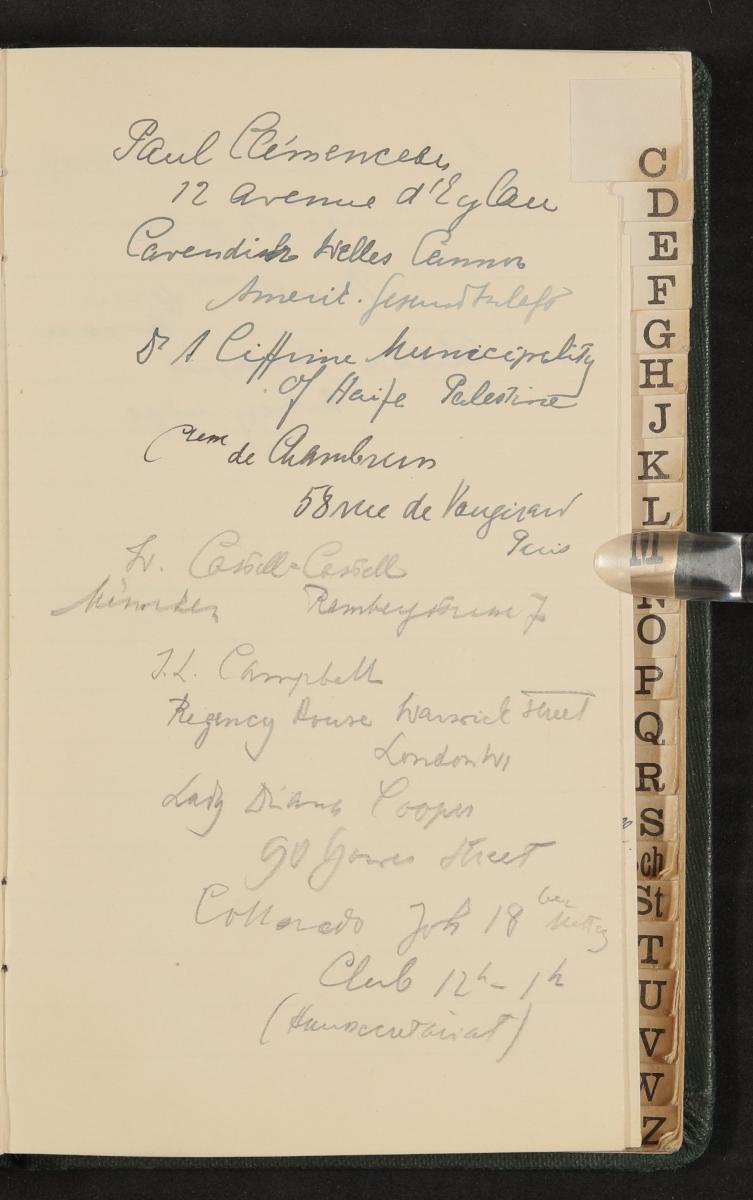 Paul Clémenceau
12 avenue d'Eylau
Cavendish Welles Cannon
Amerik. Gesandtschaft
Dr A Ciffrine Municipality
of Haife Palestine
de Chambrun
58 rue de Vaugirard
Paris
Castell-Castell
München
I.L. Campbell
Regency House Warwick Street
London W1
Lady Diana Cooper
90 Gower Street
18 bei
Club 12h - 1h
C
D
E
F
G
H
J
K
L
M
N
O
P
Q
R
S
Sch
St
T
U
V
W
Z